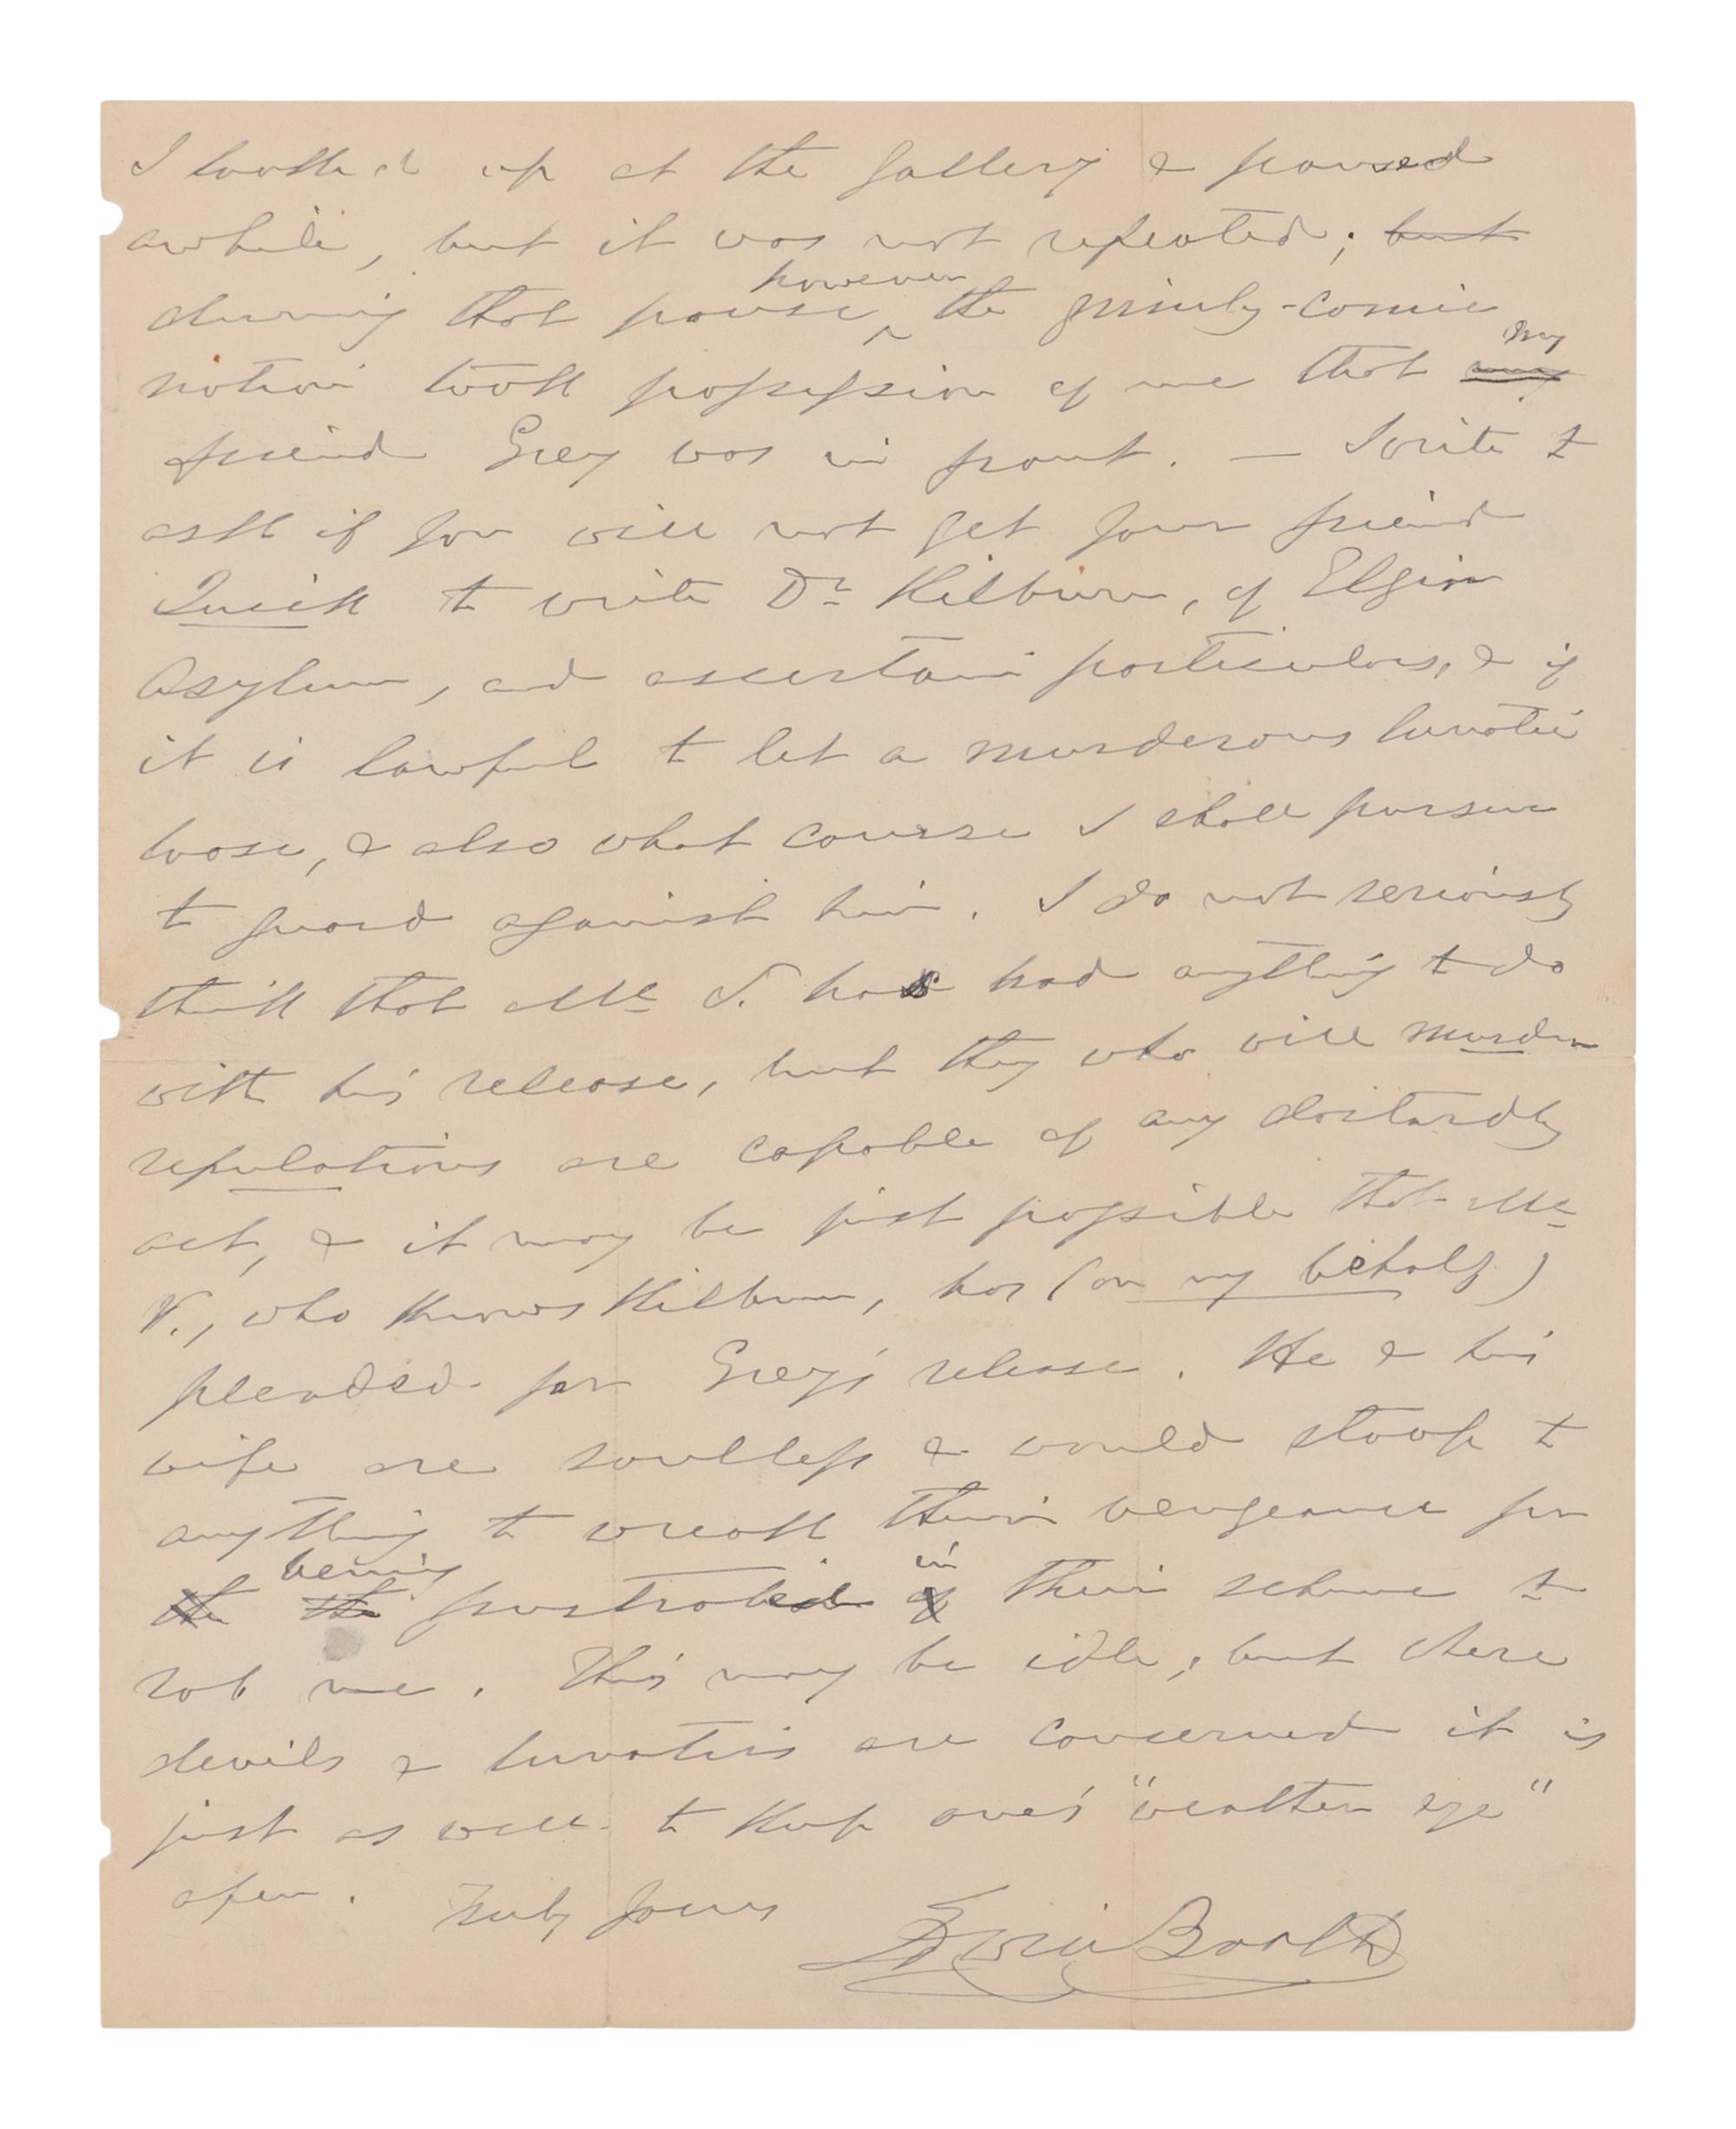 I looked up at the gallery & paused
awhile, but it was not repeated; but
however
during that pause ^ the grimly-comic
my
notion took possession of me that my
friend Grey was in front. — I write to
ask if you will not get your friend
Quick to write Dr Kilburn, of Elgin
Asylum, and ascertain particulars, & if
it is lawful to let a murderous lunatic
loose, & also what course I shall pursue
to guard against him. I do not seriously
think that Mc S. has had anything to do
with his release, but they who will murder
reputations are capable of any dastardly
act, & it may be just possible that Mc
V., who knows Kilburn, has (on my behalf)
pleaded for Grey's release. He & his
wife are soulless & would stoop to
anything to wreak their vengeance for
being in
the the frustrated of their scheme to
rob me. This may be idle, but where
devils & lunatics are concerned it is
just as well to keep one's "weather eye"
open. Truly yours
Edwin Booth